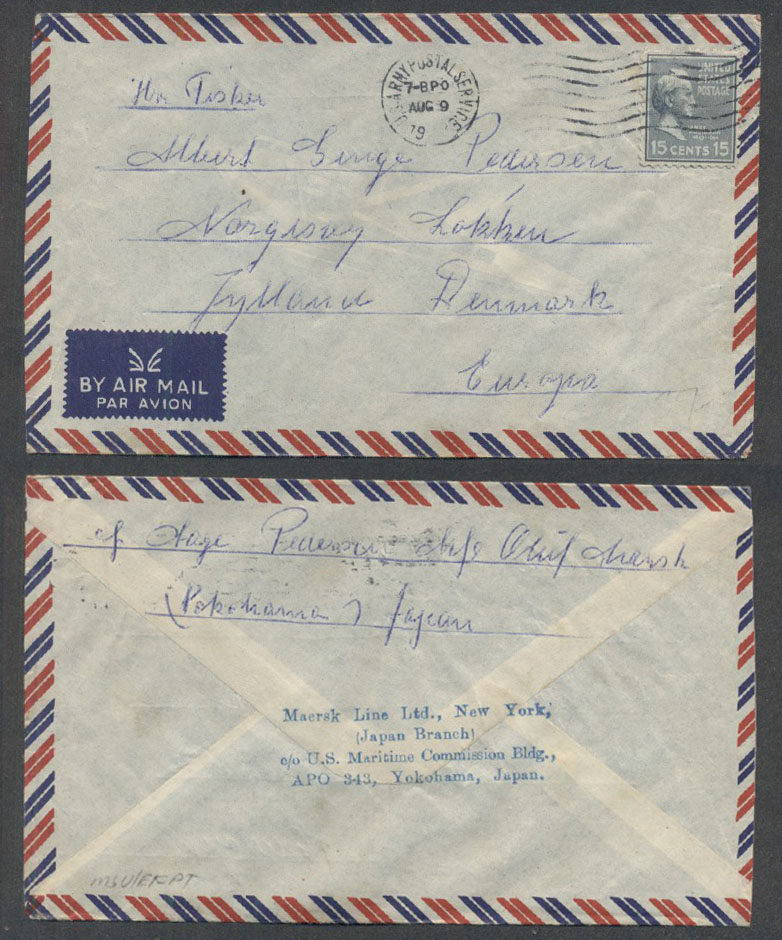 U.S. ARMY POSTAL SERVICE
7-BPO
AUG 9
19
UNITED
STATES
POSTAGE
15 CENTS 15
Hr. Fisker
Albert Pedersen
Løkken
Jylland Denmark
Europa
BY AIR MAIL
PAR AVION
Aage Pedersen Oluf Mærsk
(Yokohama) Japan
Maersk Line Ltd., New York,
(Japan Branch)
c/o U.S. Maritime Commission Bldg.,
APO 343, Yokohama, Japan.